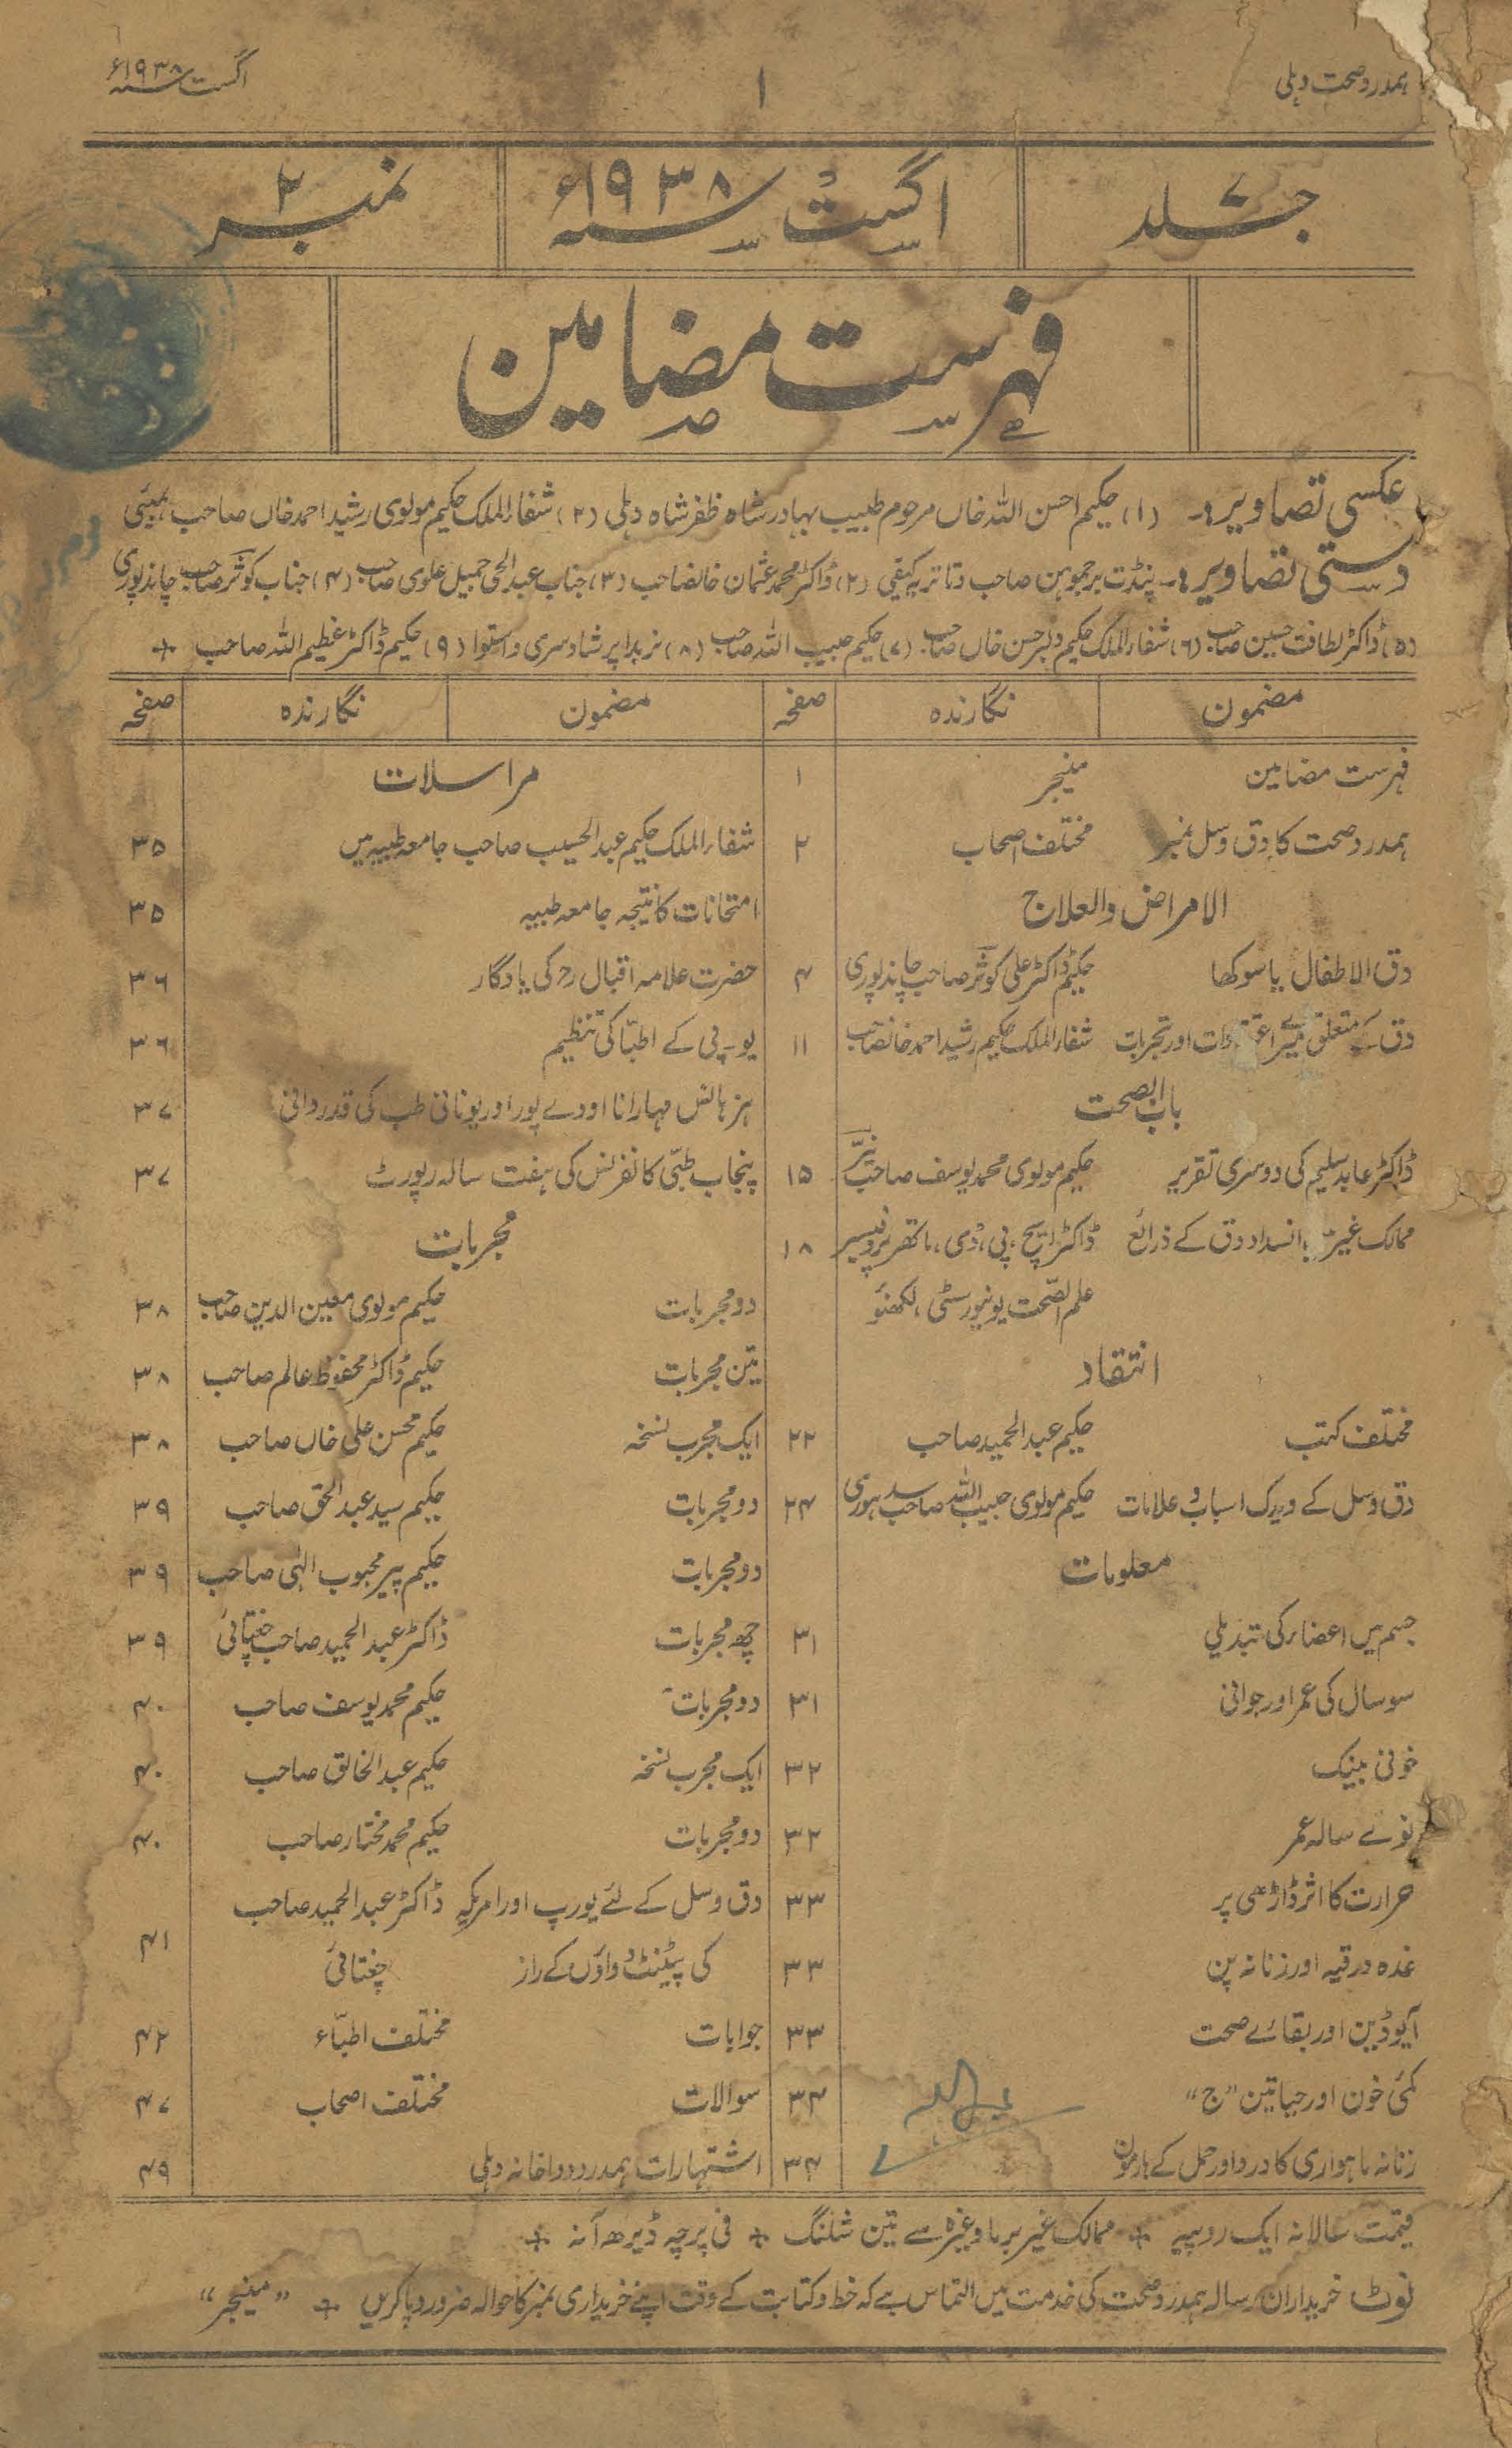 ہمدرد صحت دہلی
۱
اگست ۱۹۳۸ء
جلد ۷
اگست ۱۹۳۸ء
نمبر ۲
فہرست مضامین
عکسی تصاویر:۔ (۱) حکیم احسن اللہ خاں مرحوم طبیب بہادر شاہ ظفر شاہ دہلی (۲) شفاء الملک حکیم مولوی رشید احمد خاں صاحب بمبئی
دستی تصاویر:۔ پنڈت برجموہن صاحب دتاتریہ کیفی (۲) ڈاکٹر محمد عثمان خانصاحب (۳) جناب عبدالحی جمیل علوی صاحب (۴) جناب کوثر صاحب چاندپوری
(۵) ڈاکٹر لطافت حسین صاحب (۶) شفاء الملک حکیم دلبر حسن خاں صاحب (۷) حکیم حبیب اللہ صاحب (۸) نربدا پرشاد سری واستوا (۹) حکیم ڈاکٹر عظیم اللہ صاحب
مضمون نگارندہ صفحہ
فہرست مضامین منیجر ۱
ہمدرد صحت کا دق و سل نمبر مختلف اصحاب ۲
الامراض والعلاج
دق الاطفال یا سوکھا حکیم ڈاکٹر علی کوثر صاحب چاندپوری ۴
دق کے متعلق میرے اور تجربات شفاء الملک حکیم رشید احمد خانصاحب ۱۱
باب الصحت
ڈاکٹر عابد سلیم کی دوسری تقریر حکیم مولوی محمد یوسف صاحب نیّر ۱۵
ممالک غیر انسداد دق کے ذرائع ڈاکٹر ایچ، پی، ڈی، ماتھر پروفیسر ۱۸
علم الصّحت یونیورسٹی، لکھنؤ
انتقاد
مختلف کتب حکیم عبدالحمید صاحب ۲۲
دق و سل کے ویدک اسباب و علامات حکیم مولوی حبیب اللہ صاحب ۲۴
معلومات
جسم میں اعضاء کی تبدیلی ۳۱
سو سال کی عمر اور جوانی ۳۱
خونی بینک ۳۲
نوے سالہ عمر ۳۲
حرارت کا اثر ڈاڑھی پر ۳۳
غدہ درقیہ اور زنانہ پن ۳۳
آیوڈین اور بقائے صحت ۳۳
کمئی خون اور حیاتین ”ج“ ۳۴
زنانہ ماہواری کا درد اور حمل کے ہارمون ۳۴
مضمون نگارندہ صفحہ
مراسلات
شفاء الملک حکیم عبدالحسیب صاحب جامعہ طبیہ میں ۳۵
امتحانات کا نتیجہ جامعہ طبیہ ۳۵
حضرت علامہ اقبال رح کی یادگار ۳۶
یو۔پی کے اطبّا کی تنظیم ۳۶
ہز ہائنس مہارانا اودے پور اور یونانی طب کی قدردانی ۳۷
پنجاب طبّی کانفرنس کی ہفت سالہ رپورٹ ۳۷
مجربات
دو مجربات حکیم مولوی معین الدین صاحب ۳۸
تین مجربات حکیم ڈاکٹر محفوظ عالم صاحب ۳۸
ایک مجرب نسخہ حکیم محسن علی خاں صاحب ۳۸
دو مجربات حکیم سید عبدالحق صاحب ۳۹
دو مجربات حکیم پیر محبوب الٰہی صاحب ۳۹
چھ مجربات ڈاکٹر عبدالحمید صاحب چغتائی ۳۹
دو مجربات حکیم محمد یوسف صاحب ۴۰
ایک مجرب نسخہ حکیم عبدالخالق صاحب ۴۰
دو مجربات حکیم محمد مختار صاحب ۴۰
دق و سل کے لئے یورپ اور امریکہ ڈاکٹر عبدالحمید صاحب
کی پٹینٹ دواؤں کے راز چغتائی ۴۱
جوابات مختلف اطبّاء ۴۲
سوالات مختلف اصحاب ۴۷
اشتہارات ہمدرد دواخانہ دہلی ۴۹
قیمت سالانہ ایک روپیہ ممالک غیر برما وغیرہ سے تین شلنگ فی پرچہ ڈیڑھ آنہ
نوٹ خریداران رسالہ ہمدرد صحت کی خدمت میں التماس ہے کہ خط و کتابت کے وقت اپنے خریداری نمبر کا حوالہ ضرور دیا کریں ”منیجر“